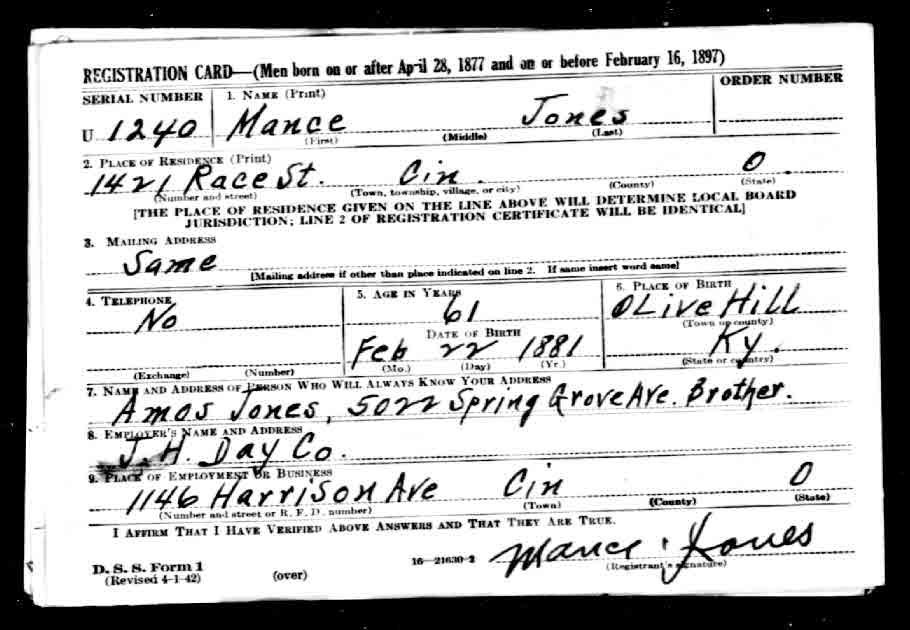 REGISTRATION CARD—(Men born on or after April 28, 1877 and on or before February 16, 1897)
SERIAL NUMBER 1. NAME (Print) ORDER NUMBER
U 1240 Mance Jones
(First) (Middle) (Last)
2. PLACE OF RESIDENCE (Print)
1421 Race St. Cin. O
(Number and street) (Town, township, village, or city) (County) (State)
[THE PLACE OF RESIDENCE GIVEN ON THE LINE ABOVE WILL DETERMINE LOCAL BOARD
JURISDICTION; LINE 2 OF REGISTRATION CERTIFICATE WILL BE IDENTICAL]
3. MAILING ADDRESS
Same
[Mailing address if other than place indicated on line 2. If same insert word same]
4. TELEPHONE 5. AGE IN YEARS 6. PLACE OF BIRTH
No 61 OLive Hill
DATE OF BIRTH (Town or county)
Feb 22 1881 Ky.
(Exchange) (Number) (Mo.) (Day) (Yr.) (State or country)
7. NAME AND ADDRESS OF PERSON WHO WILL ALWAYS KNOW YOUR ADDRESS
Amos Jones, 5022 Spring Grove Ave. Brother.
8. EMPLOYER'S NAME AND ADDRESS
J. H. Day Co.
9. PLACE OF EMPLOYMENT OR BUSINESS
1146 Harrison Ave Cin O
(Number and street or R. F. D. number) (Town) (County) (State)
I AFFIRM THAT I HAVE VERIFIED ABOVE ANSWERS AND THAT THEY ARE TRUE.
D. S. S. Form 1 16—21630-2 Mance Jones
(Revised 4-1-42) (over) (Registrant's signature)